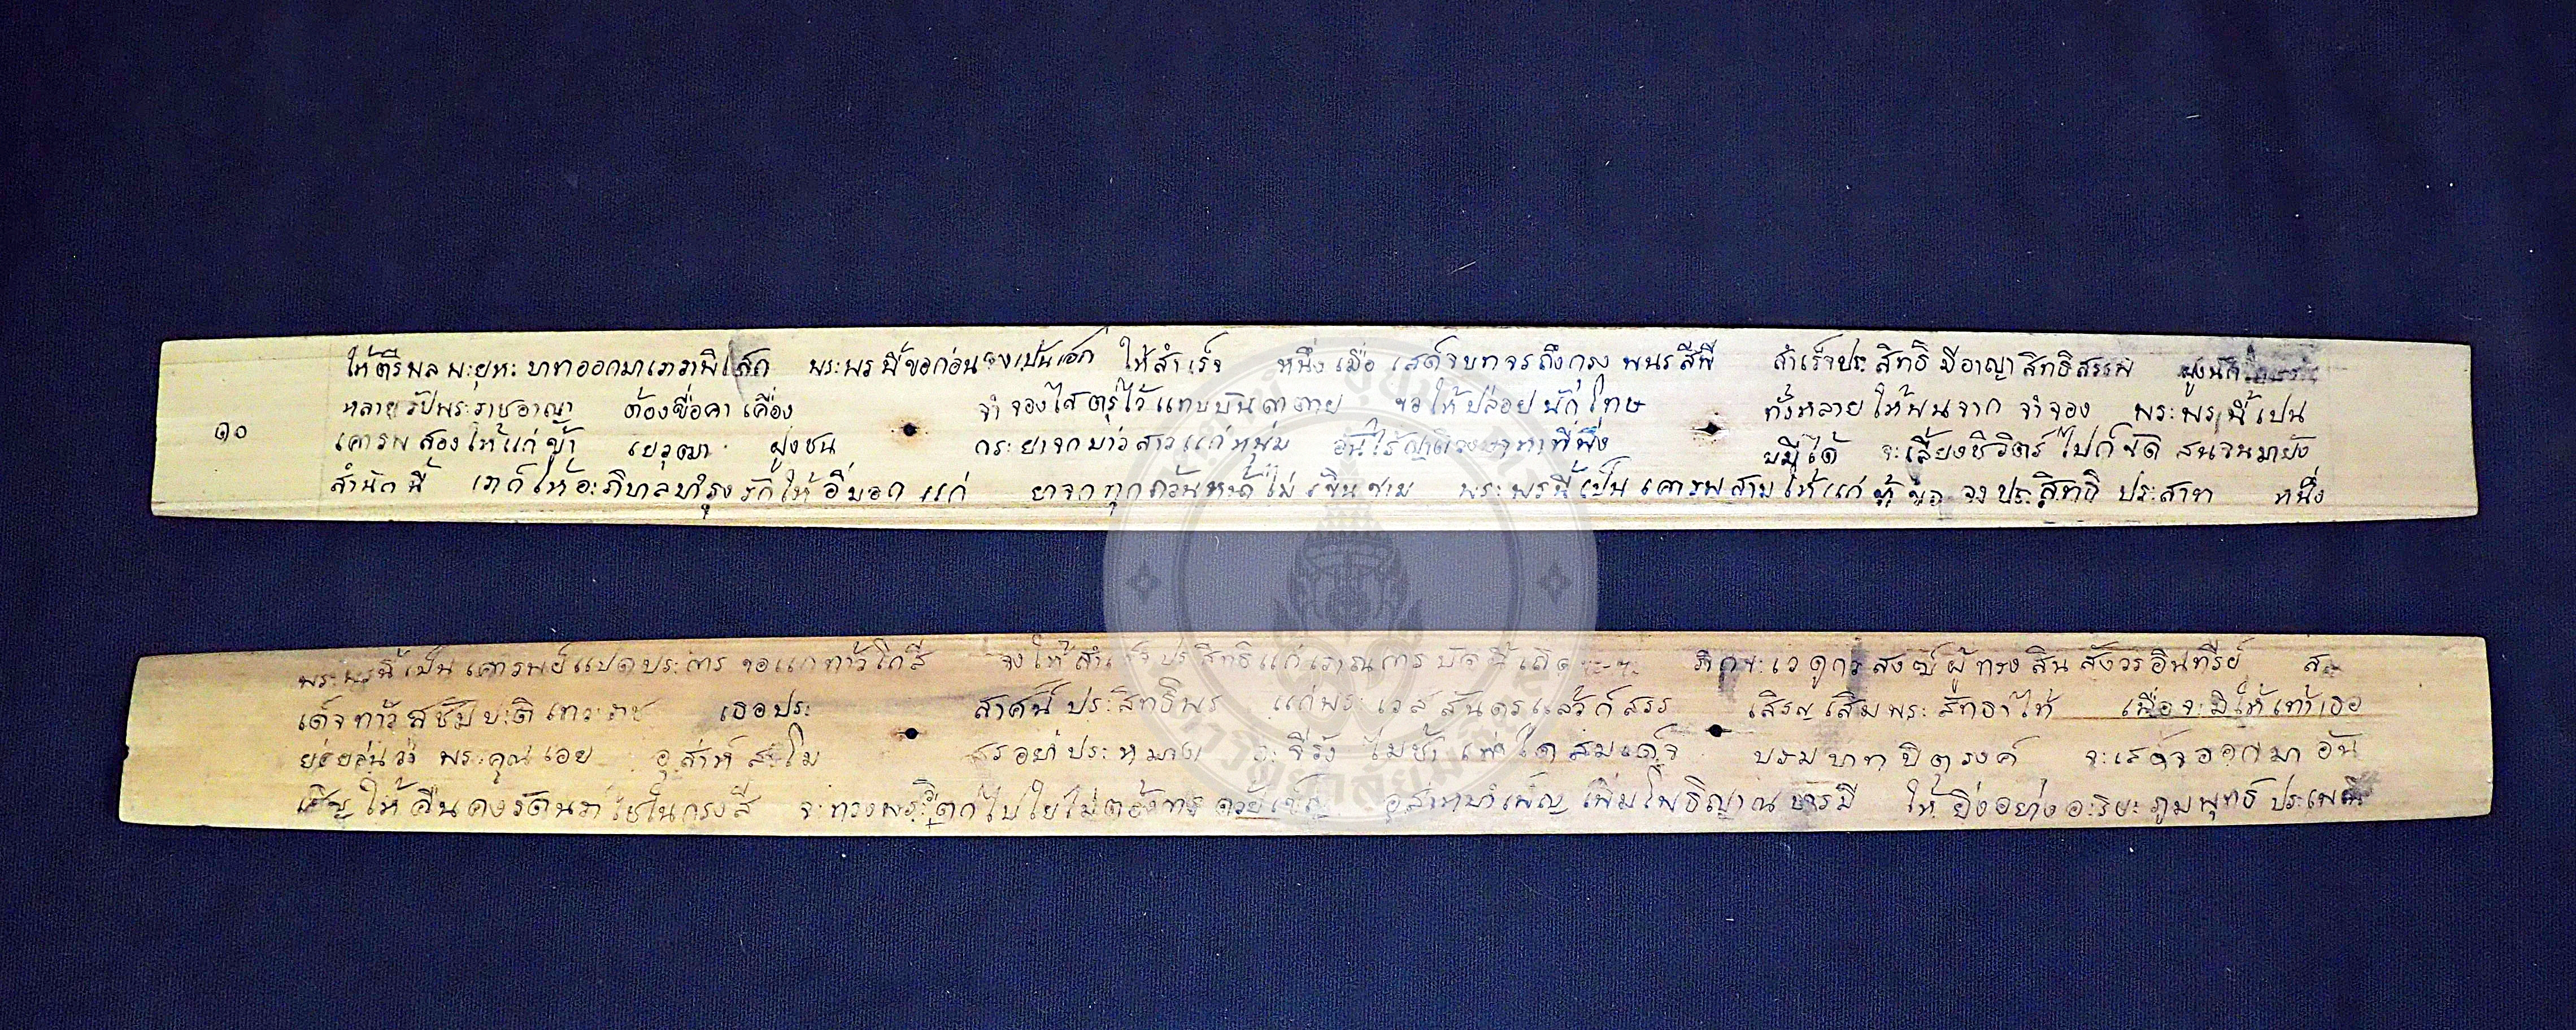 ให้ตรีพลพะยุหะบาทออกมาเภาวาพิเสก พระพรนี้ขอก่อนจงเป็นเอก ให้สำเร็จ หนึ่งเมื่อ เสด็จบทจรถึงกรุง พนรสีพี สำเร็จประสิทธิ มีอาญาสิทธิสรรพ ฝูงนัก
หลายรับพระราชอาญา ต้องขื่อคาเคือง จำจองใส่ตรุไว้แทบบันดาตาย ขอให้ปล่อยนักโทษ ทั้งหลายให้พนจาก จำจอง พระพรนี้เปน
๑๐
เคารพสองให้แก่ข้า เยวุฒา ฝูงชน กระยาจกบ่าวสาวแก่หนุ่ม อันไร้ญาติวงษาหาที่พึ่ง บมิได้ จะเลี้ยงชีวิตร์ไปก็ขัด สนจนมายัง
สำนักนี้ เภาก็ให้อะภิบาลบำรุงรักให้อิ่มออก แก่ ยาจกทุกถ้วนหน้าไม่เขินขาม พระพรนี้เป็นเคารพสามให้แก่ ข้าขอ จงประสิทธิ ประสาท หนึ่ง
พระพรนี้เป็นเคารพย์แปดประการ ขอแกทาวโกสี จงให้สำเร็จประสิทธิแก่เภาณการบัดนี้เถิด ภิกขะเวดูกรสงฆ์ผู้ทรงสินสังวรอินทรีย์ ส
เด็จทาวสุชัมบะดิเทวะราช เธอประ สาศน์ประสิทธิพร แก่พระเวสสันดรแลว้ก็สรร เสิรญเสิมพระสัทธาให้ เพื่อจะมิให้เท้าเธอ
ย่อยล่นว่า พระคุณเอย อุส่าห์สะโม สรอย่าประหมาท จะจีรัง ไม่ช้าเท่าใดสมเด็จ บรมบาทบิตุรงค์ จะเสด็จออกมาอัน
เสิญให้คืนคงรัตนราไชในกรุงสี จะทรงพระวิตกไปใยไม่ตอ้งการ อุส่าหบำเพ็ญเพิ่มโพธิญาณบารมี ให้ยิ่งอย่างอะริยะภูมพุทธิประเพณี